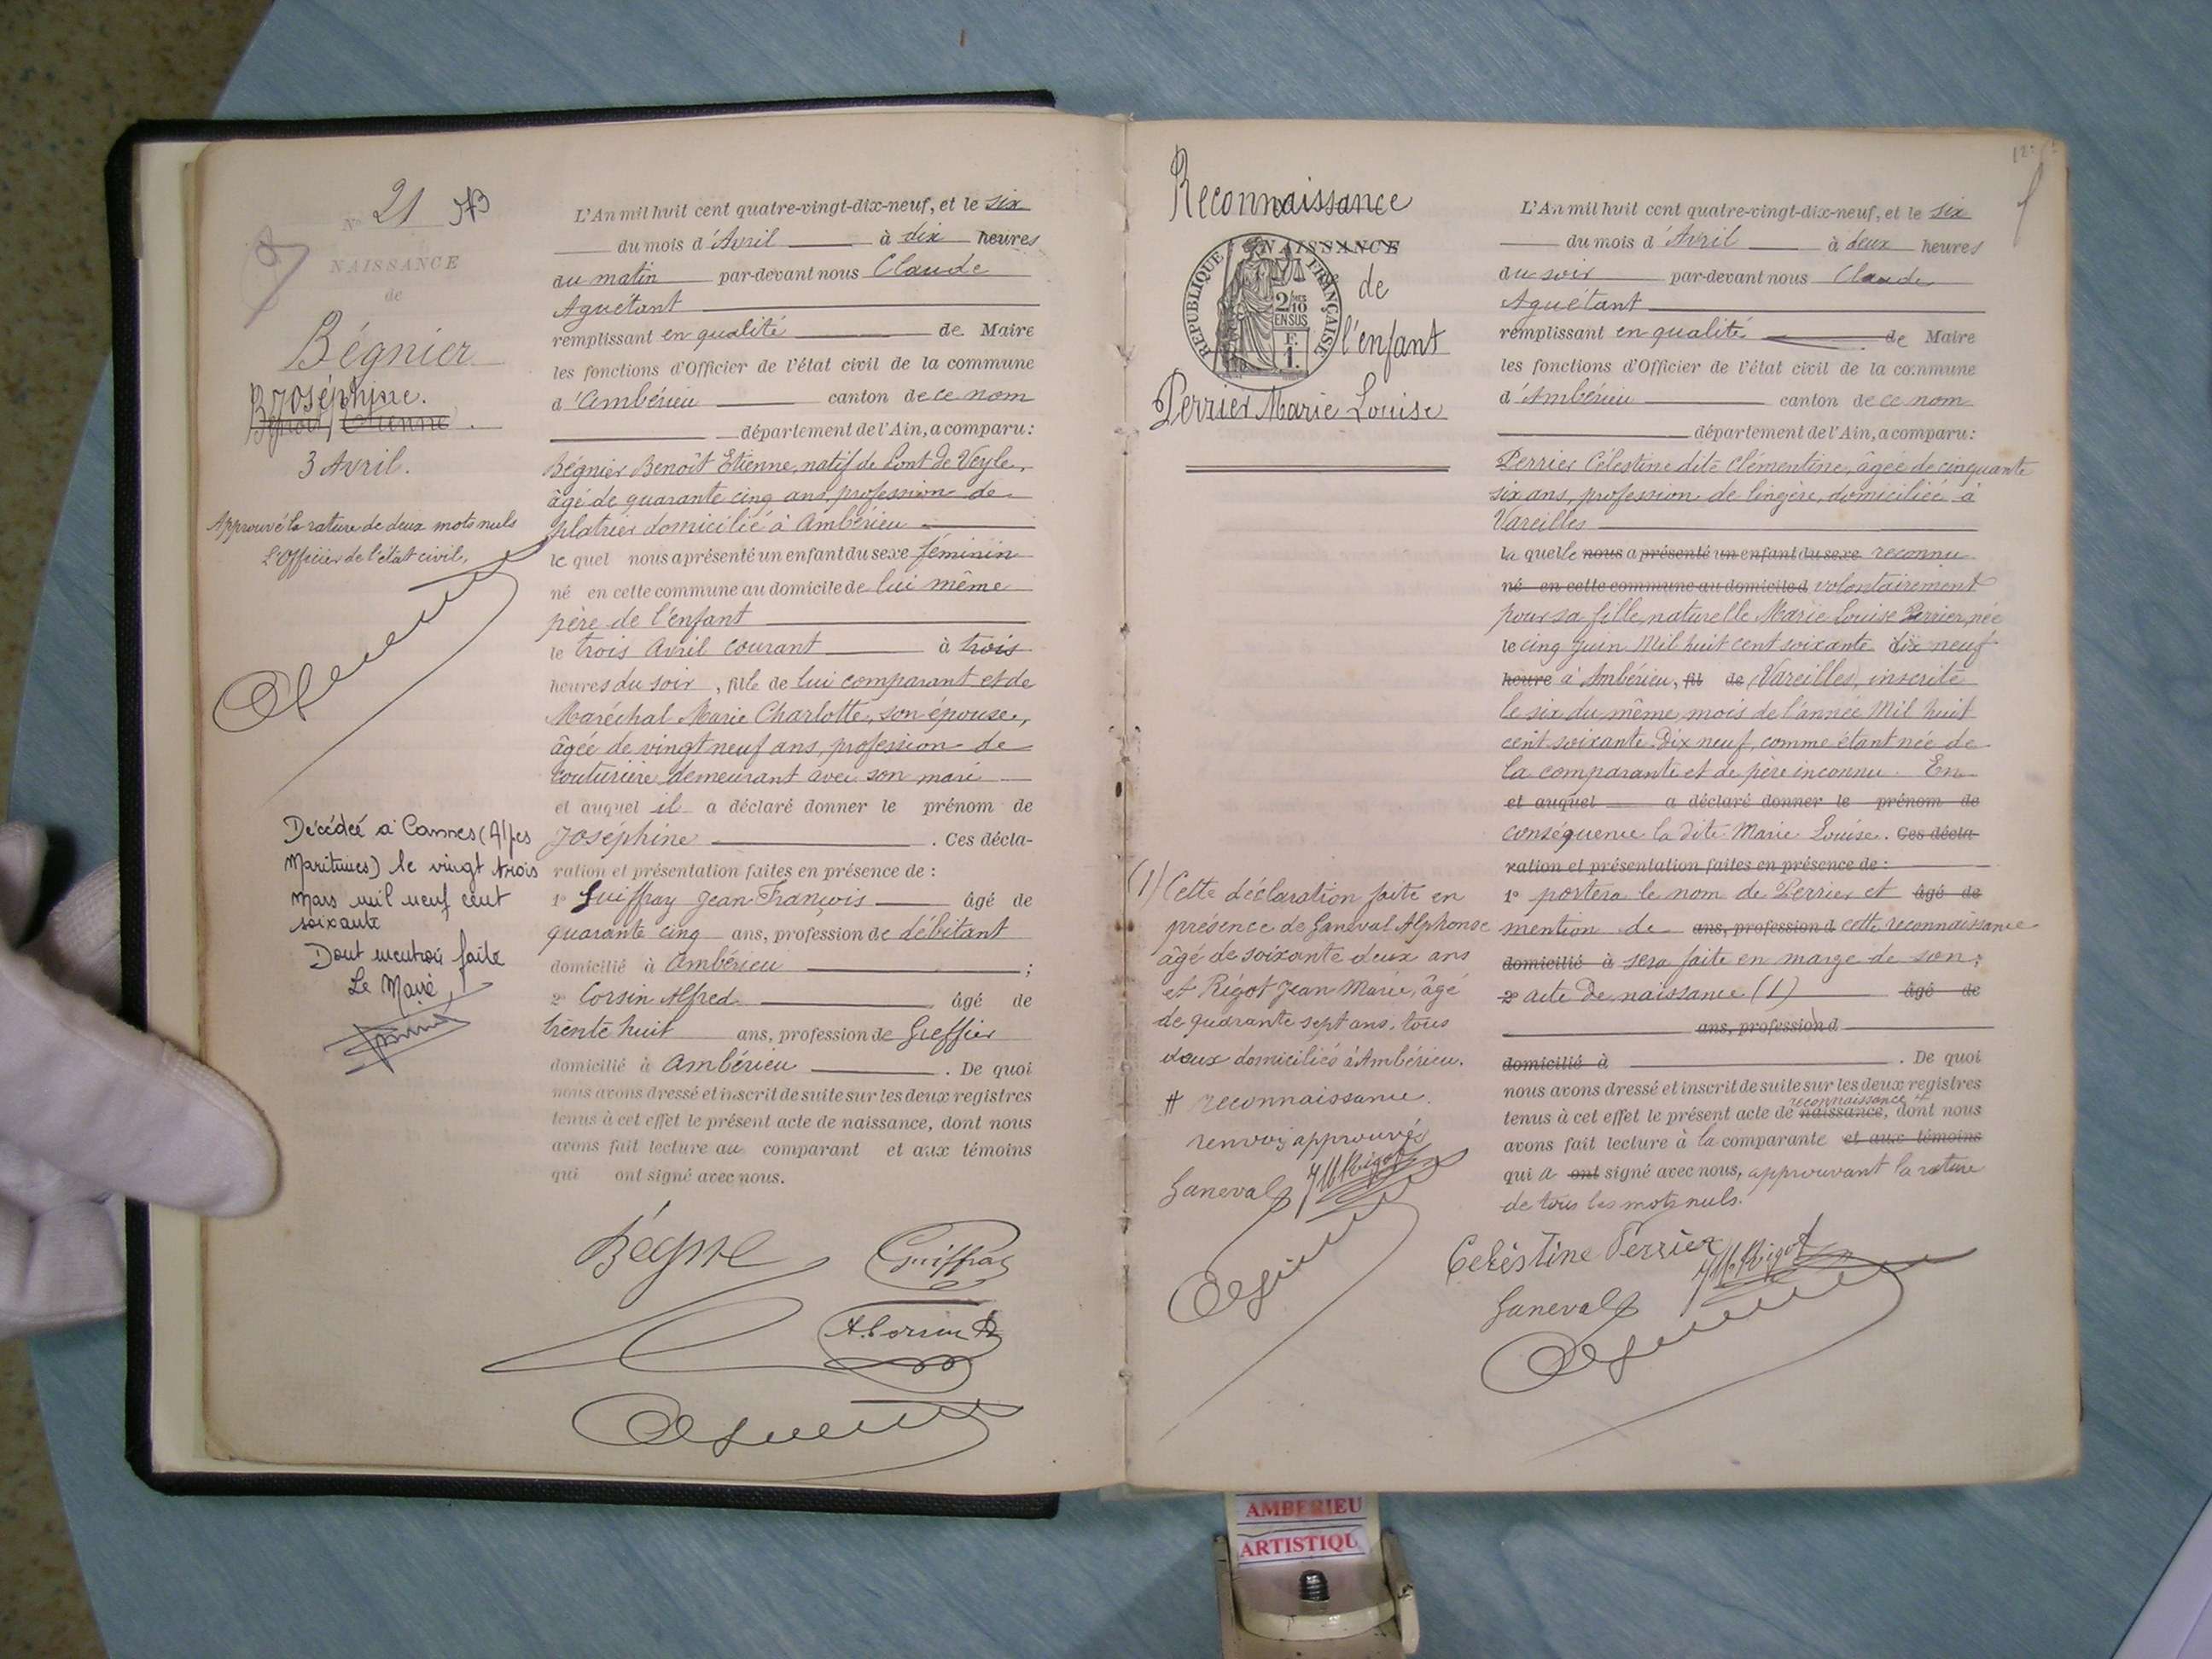 N° 21
NAISSANCE
de
Bégnier
Joséphine.
Benoit, Etienne.
3 Avril.
Approuvé la rature de deux mots nuls
L'Officier de l'état civil,
Décédée à Cannes (Alpes
Maritimes) le vingt trois
mars mil neuf cent
soixante
Dont mention faite
Le Maire
L'An mil huit cent quatre-vingt-dix-neuf, et le six
du mois d'Avril à dix heures
du matin par-devant nous Claude
Aguétant
remplissant en qualité de Maire
les fonctions d'Officier de l'état civil de la commune
d'Ambérieu canton de ce nom
département de l'Ain, a comparu:
Bégnier Benoît Etienne, natif de Pont de Veyle,
âgé de quarante cinq ans, profession de
plâtrier domicilié à Ambérieu
le quel nous a présenté un enfant du sexe féminin
né en cette commune au domicile de lui même
père de l'enfant
le trois Avril courant à trois
heures du soir, fille de lui comparant et de
Maréchal Marie Charlotte, son épouse,
âgée de vingt neuf ans, profession de
couturière demeurant avec son mari
et auquel il a déclaré donner le prénom de
Joséphine. Ces décla-
ration et présentation faites en présence de :
1° Guiffray Jean François âgé de
quarante cinq ans, profession de débitant
domicilié à Ambérieu ;
2° Corsin Alfred âgé de
trente huit ans, profession de Greffier
domicilié à Ambérieu. De quoi
nous avons dressé et inscrit de suite sur les deux registres
tenus à cet effet le présent acte de naissance, dont nous
avons fait lecture au comparant et aux témoins
qui ont signé avec nous.
Guiffray
A. Corsin
Reconnaissance
NAISSANCE
RÉPUBLIQUE FRANÇAISE
2/10 EN SUS
F. 1.
de
l'enfant
Perrier Marie Louise
(1) Cette déclaration faite en
présence de Ganeval Alphonse
âgé de soixante deux ans
et Rigot Jean Marie, âgé
de quarante sept ans, tous
deux domiciliés à Ambérieu.
# reconnaissance.
renvois approuvés
Ganeval JM Rigot
L'An mil huit cent quatre-vingt-dix-neuf, et le six
du mois d'Avril à deux heures
du soir par-devant nous Claude
Aguétant
remplissant en qualité de Maire
les fonctions d'Officier de l'état civil de la commune
d'Ambérieu canton de ce nom
département de l'Ain, a comparu:
Perrier Célestine dite Clémentine, âgée de cinquante
six ans, profession de lingère, domiciliée à
Vareilles
la quelle nous a présenté un enfant du sexe reconnu
né en cette commune au domicile d volontairement
pour sa fille naturelle Marie Louise Perrier, née
le cinq juin Mil huit cent soixante dix neuf
heure à Ambérieu, fil de (Vareilles), inscrite
le six du même mois de l'année Mil huit
cent soixante Dix neuf, comme étant née de
la comparante et de père inconnu. En
et auquel a déclaré donner le prénom de
conséquence la dite Marie Louise. Ces décla-
ration et présentation faites en présence de :
1° portera le nom de Perrier et âgé de
mention de ans, profession d cette reconnaissance
domicilié à sera faite en marge de son ;
2° acte de naissance (1) âgé de
ans, profession d
domicilié à . De quoi
nous avons dressé et inscrit de suite sur les deux registres
reconnaissance #
tenus à cet effet le présent acte de naissance, dont nous
avons fait lecture à la comparante et aux témoins
qui a ont signé avec nous, approuvant la rature
de tous les mots nuls.
Celéstine Perrier JM Rigot
Ganeval
AMBERIEU
ARTISTIQU